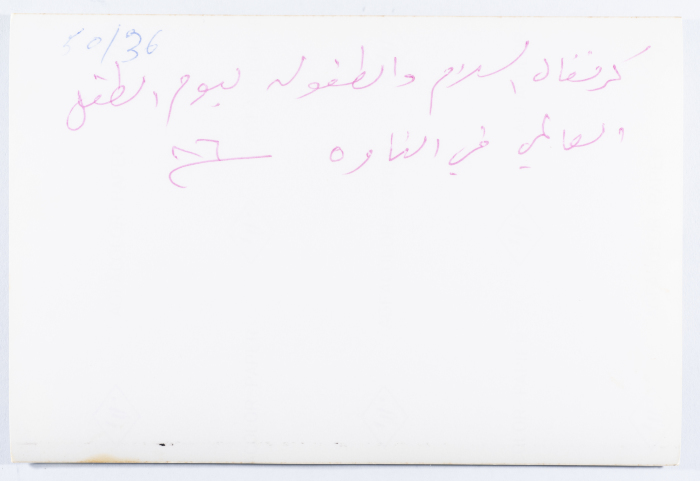 50/36
كرنفال السلام والطفوله ليوم الطفل
العالمي في الناصره ٨٦